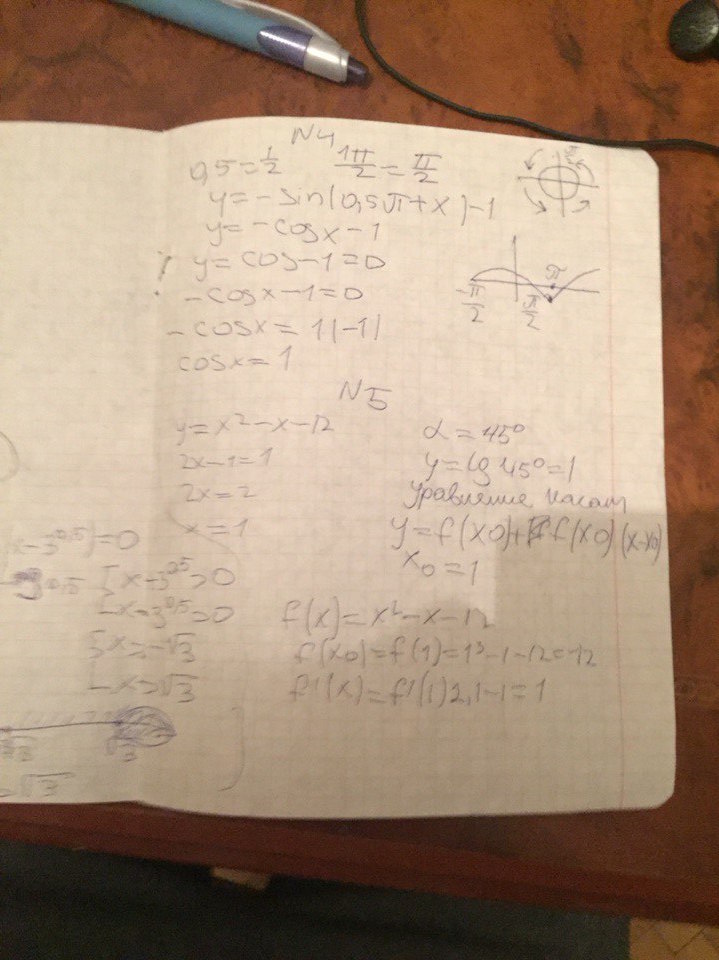 N4
0,5=1/2 1π/2=π/2
y=-sin(0,5π+x)-1
y=-cosx-1
y=cos-1=0
-cosx-1=0
-cosx=1|-1|
cosx=1
-π/2 π/2 π
N5
y=x²-x-12
2x-1=1
2x=2
x=1
α=45°
y=tg45°=1
Уравнение касат
y=f(x0)+f(x0)(x-x0)
x0=1
f(x)=x²-x-12
f(x0)=f(1)=1³-1-12=-12
f'(x)=f'(1)2,1-1=1
x-3^0,5)=0
[x-3^0,5=0
-x=3^0,5=0
x=-√3
-x=√3
√3
√3